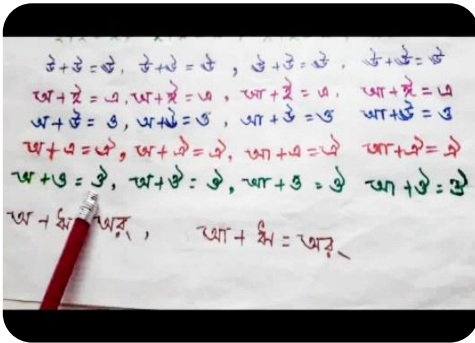 উ+উ=ঊ, উ+ঊ=ঊ, ঊ+উ=ঊ, ঊ+ঊ=ঊ
অ+ই=এ, অ+ঈ=এ, আ+ই=এ, আ+ঈ=এ
অ+উ=ও, অ+ঊ=ও, আ+উ=ও, আ+ঊ=ও
অ+এ=ঐ, অ+ঐ=ঐ, আ+এ=ঐ, আ+ঐ=ঐ
অ+ও=ঔ, অ+ঔ=ঔ, আ+ও=ঔ, আ+ঔ=ঔ
অ+ঋ=অর্, আ+ঋ=অর্